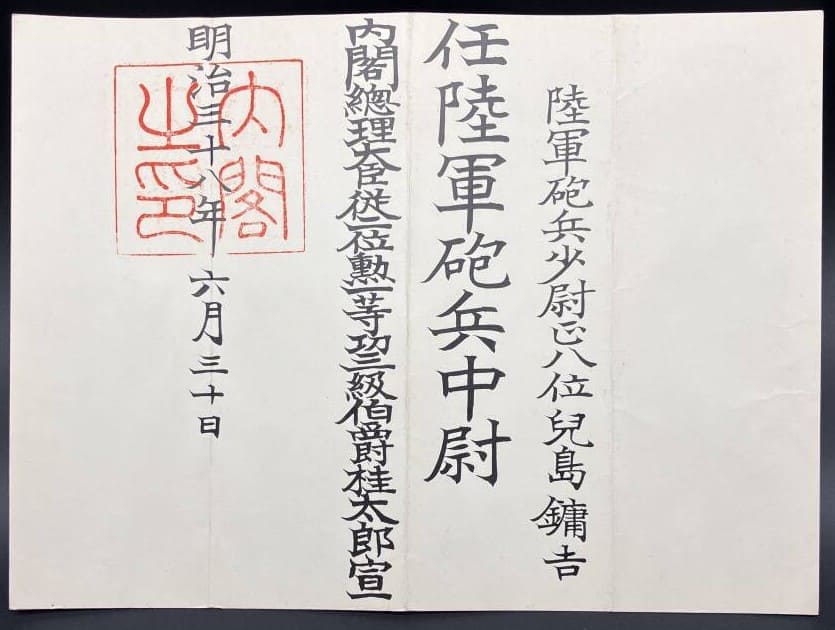 陸軍砲兵少尉正八位兒島鏞吉
任陸軍砲兵中尉
内閣總理大臣從二位勳一等功三級伯爵桂太郎宣
明治三十八年六月三十日
内閣
之印